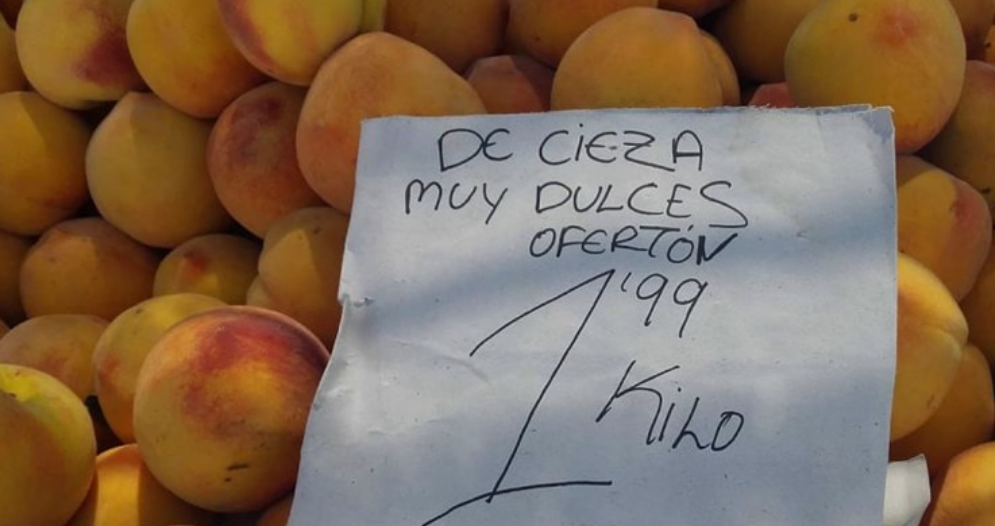 DE CiEZA
MUY DULCES
OFERTÓN
1'99
KiLO